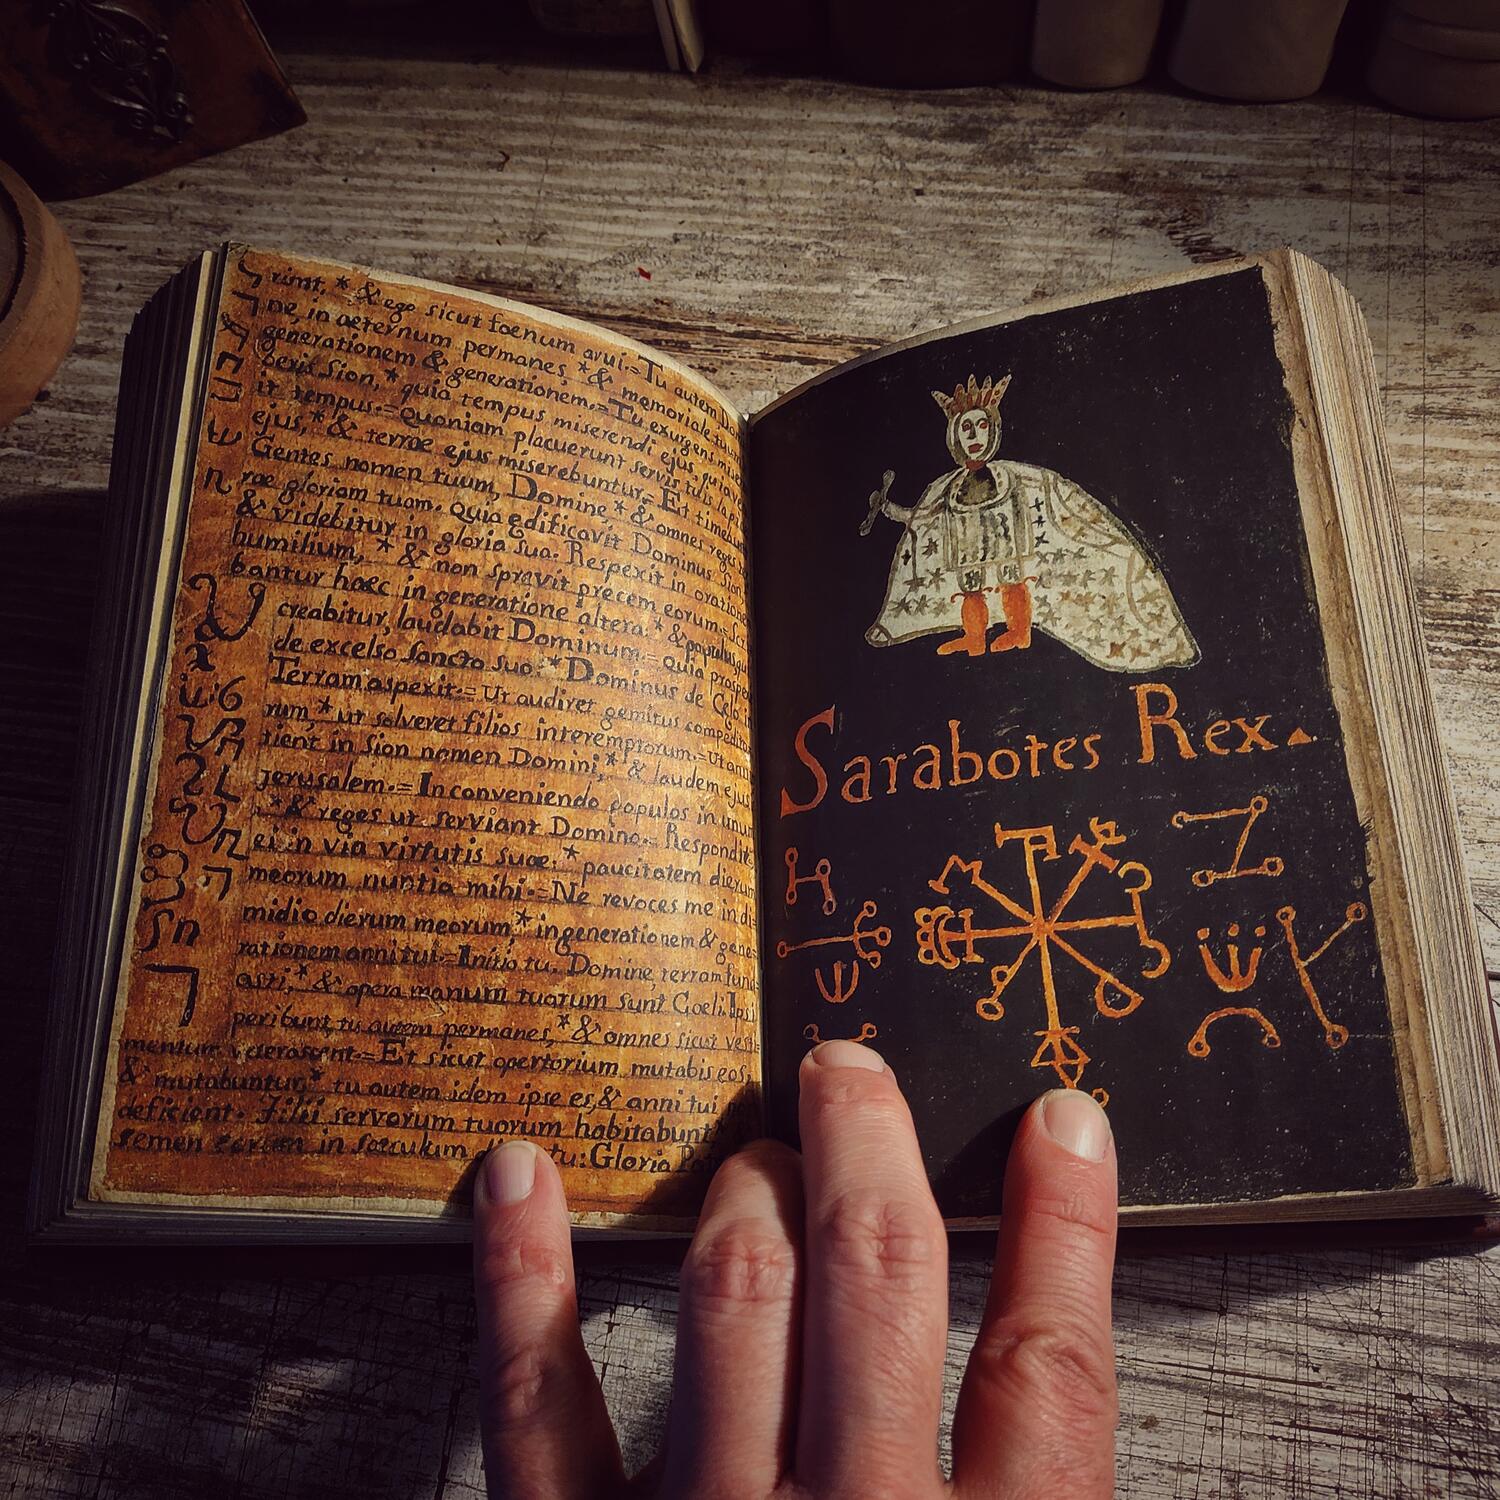 runt. * & ego sicut foenum arui.= Tu autem
ne, in aeternum permanes, * & memoriale tu
generationem & generationem.= Tu exurgens mi
beris Sion, * quia tempus miserendi ejus, quia ve
it tempus.= Quoniam placuerunt servis tuis lapi
ejus, * & terrae ejus miserebuntur.= Et timebu
Gentes nomen tuum, Domine * & omnes reges
rae gloriam tuam. Quia edificavit Dominus Sion
& videbitur in gloria sua. Respexit in oratio
humilium, * & non sprevit precem eorum.= Scr
bantur haec in generatione altera. * & populus qu
creabitur, laudabit Dominum.= quia prospe
de excelso sancto suo. * Dominus de Celo in
Terram aspexit.= Ut audiret gemitus compedito
rum, * ut solveret filios interemptorum.= Ut annu
tient in Sion nomen Domini, * & laudem ejus
Jerusalem.= In conveniendo populos in unum
* & reges ut serviant Domino.= Respondit
ei in via virtutis suae, * paucitatem dierum
meorum nuntia mihi.= Ne revoces me in di
midio dierum meorum, * in generationem & gene
rationem anni tui.= Initio tu, Domine, terram fund
asti, * & opera manuum tuorum sunt Coeli. Ipsi
peribunt tu autem permanes, * & omnes sicut vesti
mentum veterascent.= Et sicut opertorium mutabis eos,
& mutabuntur, * tu autem idem ipse es, & anni tui
deficient. Filii servorum tuorum habitabunt
semen eorum in saeculum tu: Gloria
Sarabotes Rex.